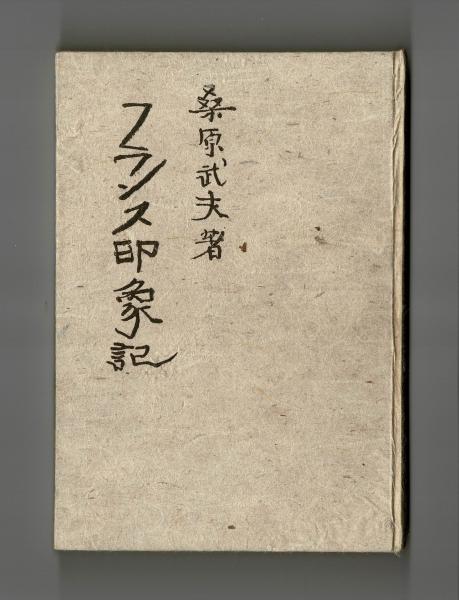 桑原武夫著
フランス印象記